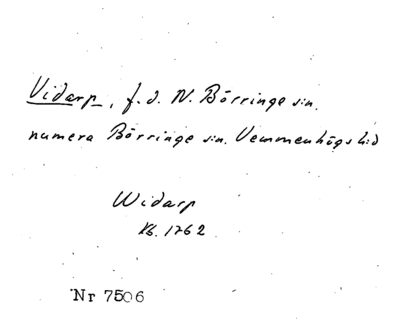 Vidarp, f.d. N. Börringe sn.
numera Börringe sn. Vemmenhögs hd
Widarp
Kb. 1762
Nr 7506